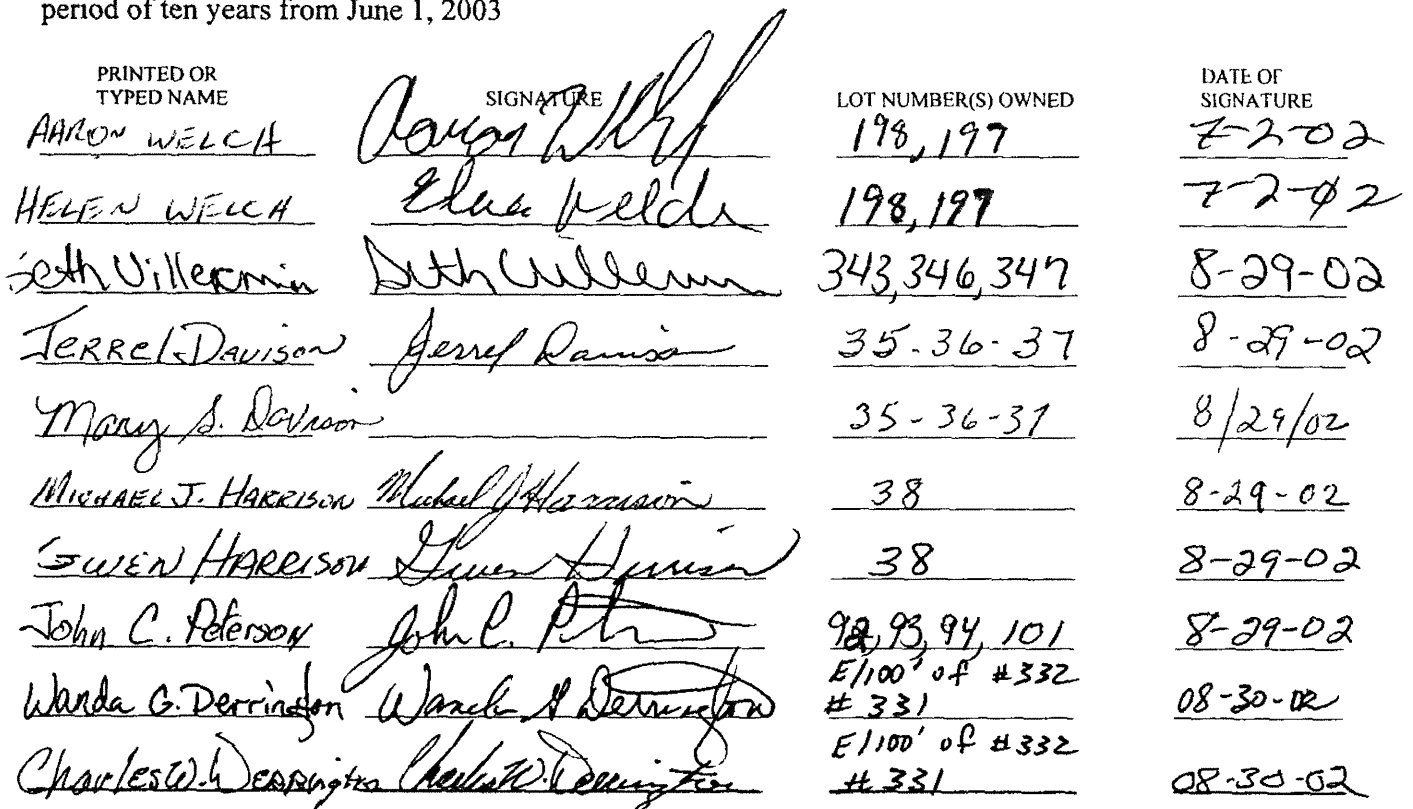 period of ten years from June 1, 2003
PRINTED OR TYPED NAME SIGNATURE LOT NUMBER(S) OWNED DATE OF SIGNATURE
AARON WELCH Aaron Welch 198, 197 7-2-02
HELEN WELCH 198, 197 7-2-02
Seth Villermin Seth Villermin 343, 346, 347 8-29-02
JERREL DAVISON Jerrel Davison 35-36-37 8-29-02
Mary S. Davison 35-36-37 8/29/02
MICHAEL J. HARRISON Michael J Harrison 38 8-29-02
GWEN HARRISON Gwen Harrison 38 8-29-02
John C. Peterson John C. P 92, 93, 94, 101 8-29-02
Wanda G. Derrington Wanda G Derrington E/100' of #332 # 331 08-30-02
Charles W. Derrington Charles W. Derrington E/100' of #332 # 331 08-30-02